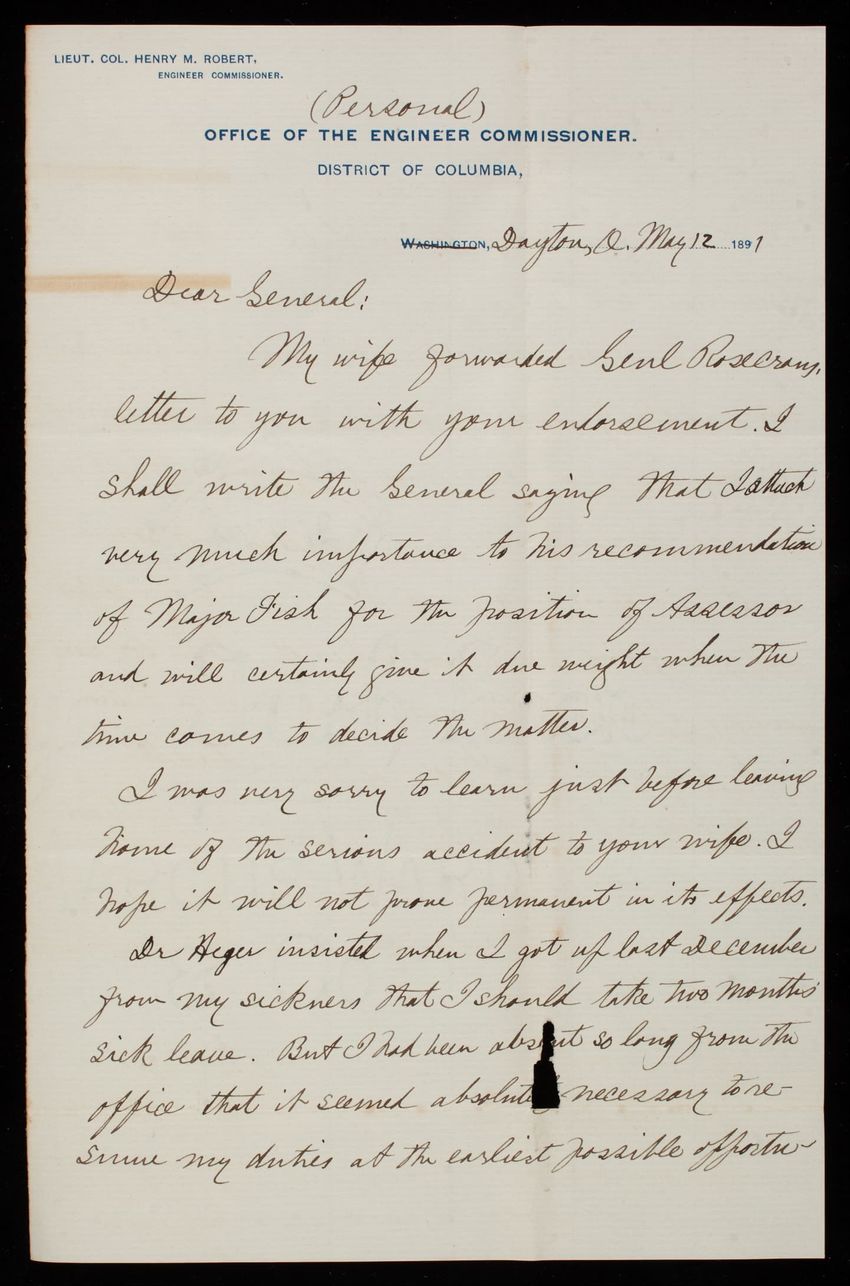 LIEUT. COL. HENRY M. ROBERT,
ENGINEER COMMISSIONER.
(Personal)
OFFICE OF THE ENGINEER COMMISSIONER.
DISTRICT OF COLUMBIA,
WASHINGTON, Dayton, O. May 12 1891
Dear General:
My wife forwarded Genl Rosecrans,
letter to you with your endorsement. I
shall write the General saying that I attach
very much importance to his recommendation
of Major Fish for the position of Assessor
and will certainly give it due weight when the
time comes to decide the matter.
I was very sorry to learn just before leaving
home of the serious accident to your wife. I
hope it will not prove permanent in its effects.
Dr Heger insisted when I got up last December
from my sickness that I should take two months'
sick leave. But I had been absent so long from the
office that it seemed absolutely necessary to re-
sume my duties at the earliest possible opportu-